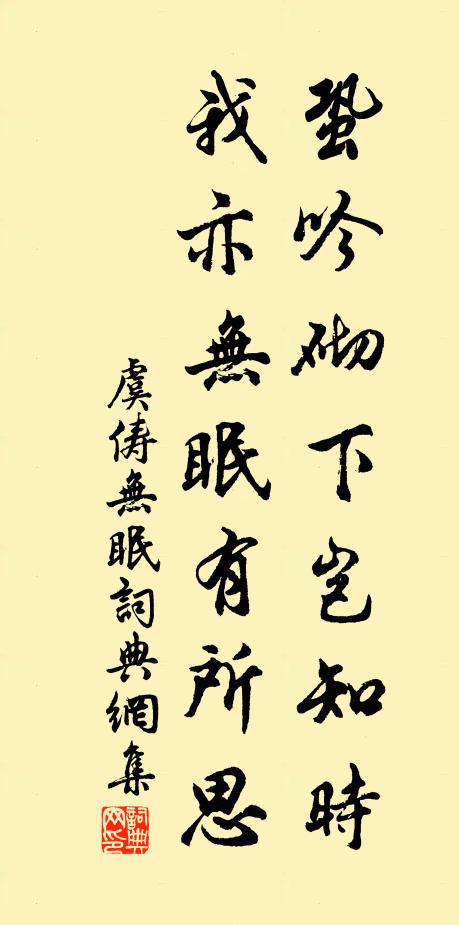 蛩吟砌下岂知時
我亦無眠有所思
虞儔無眠詞典網集
詞典网印